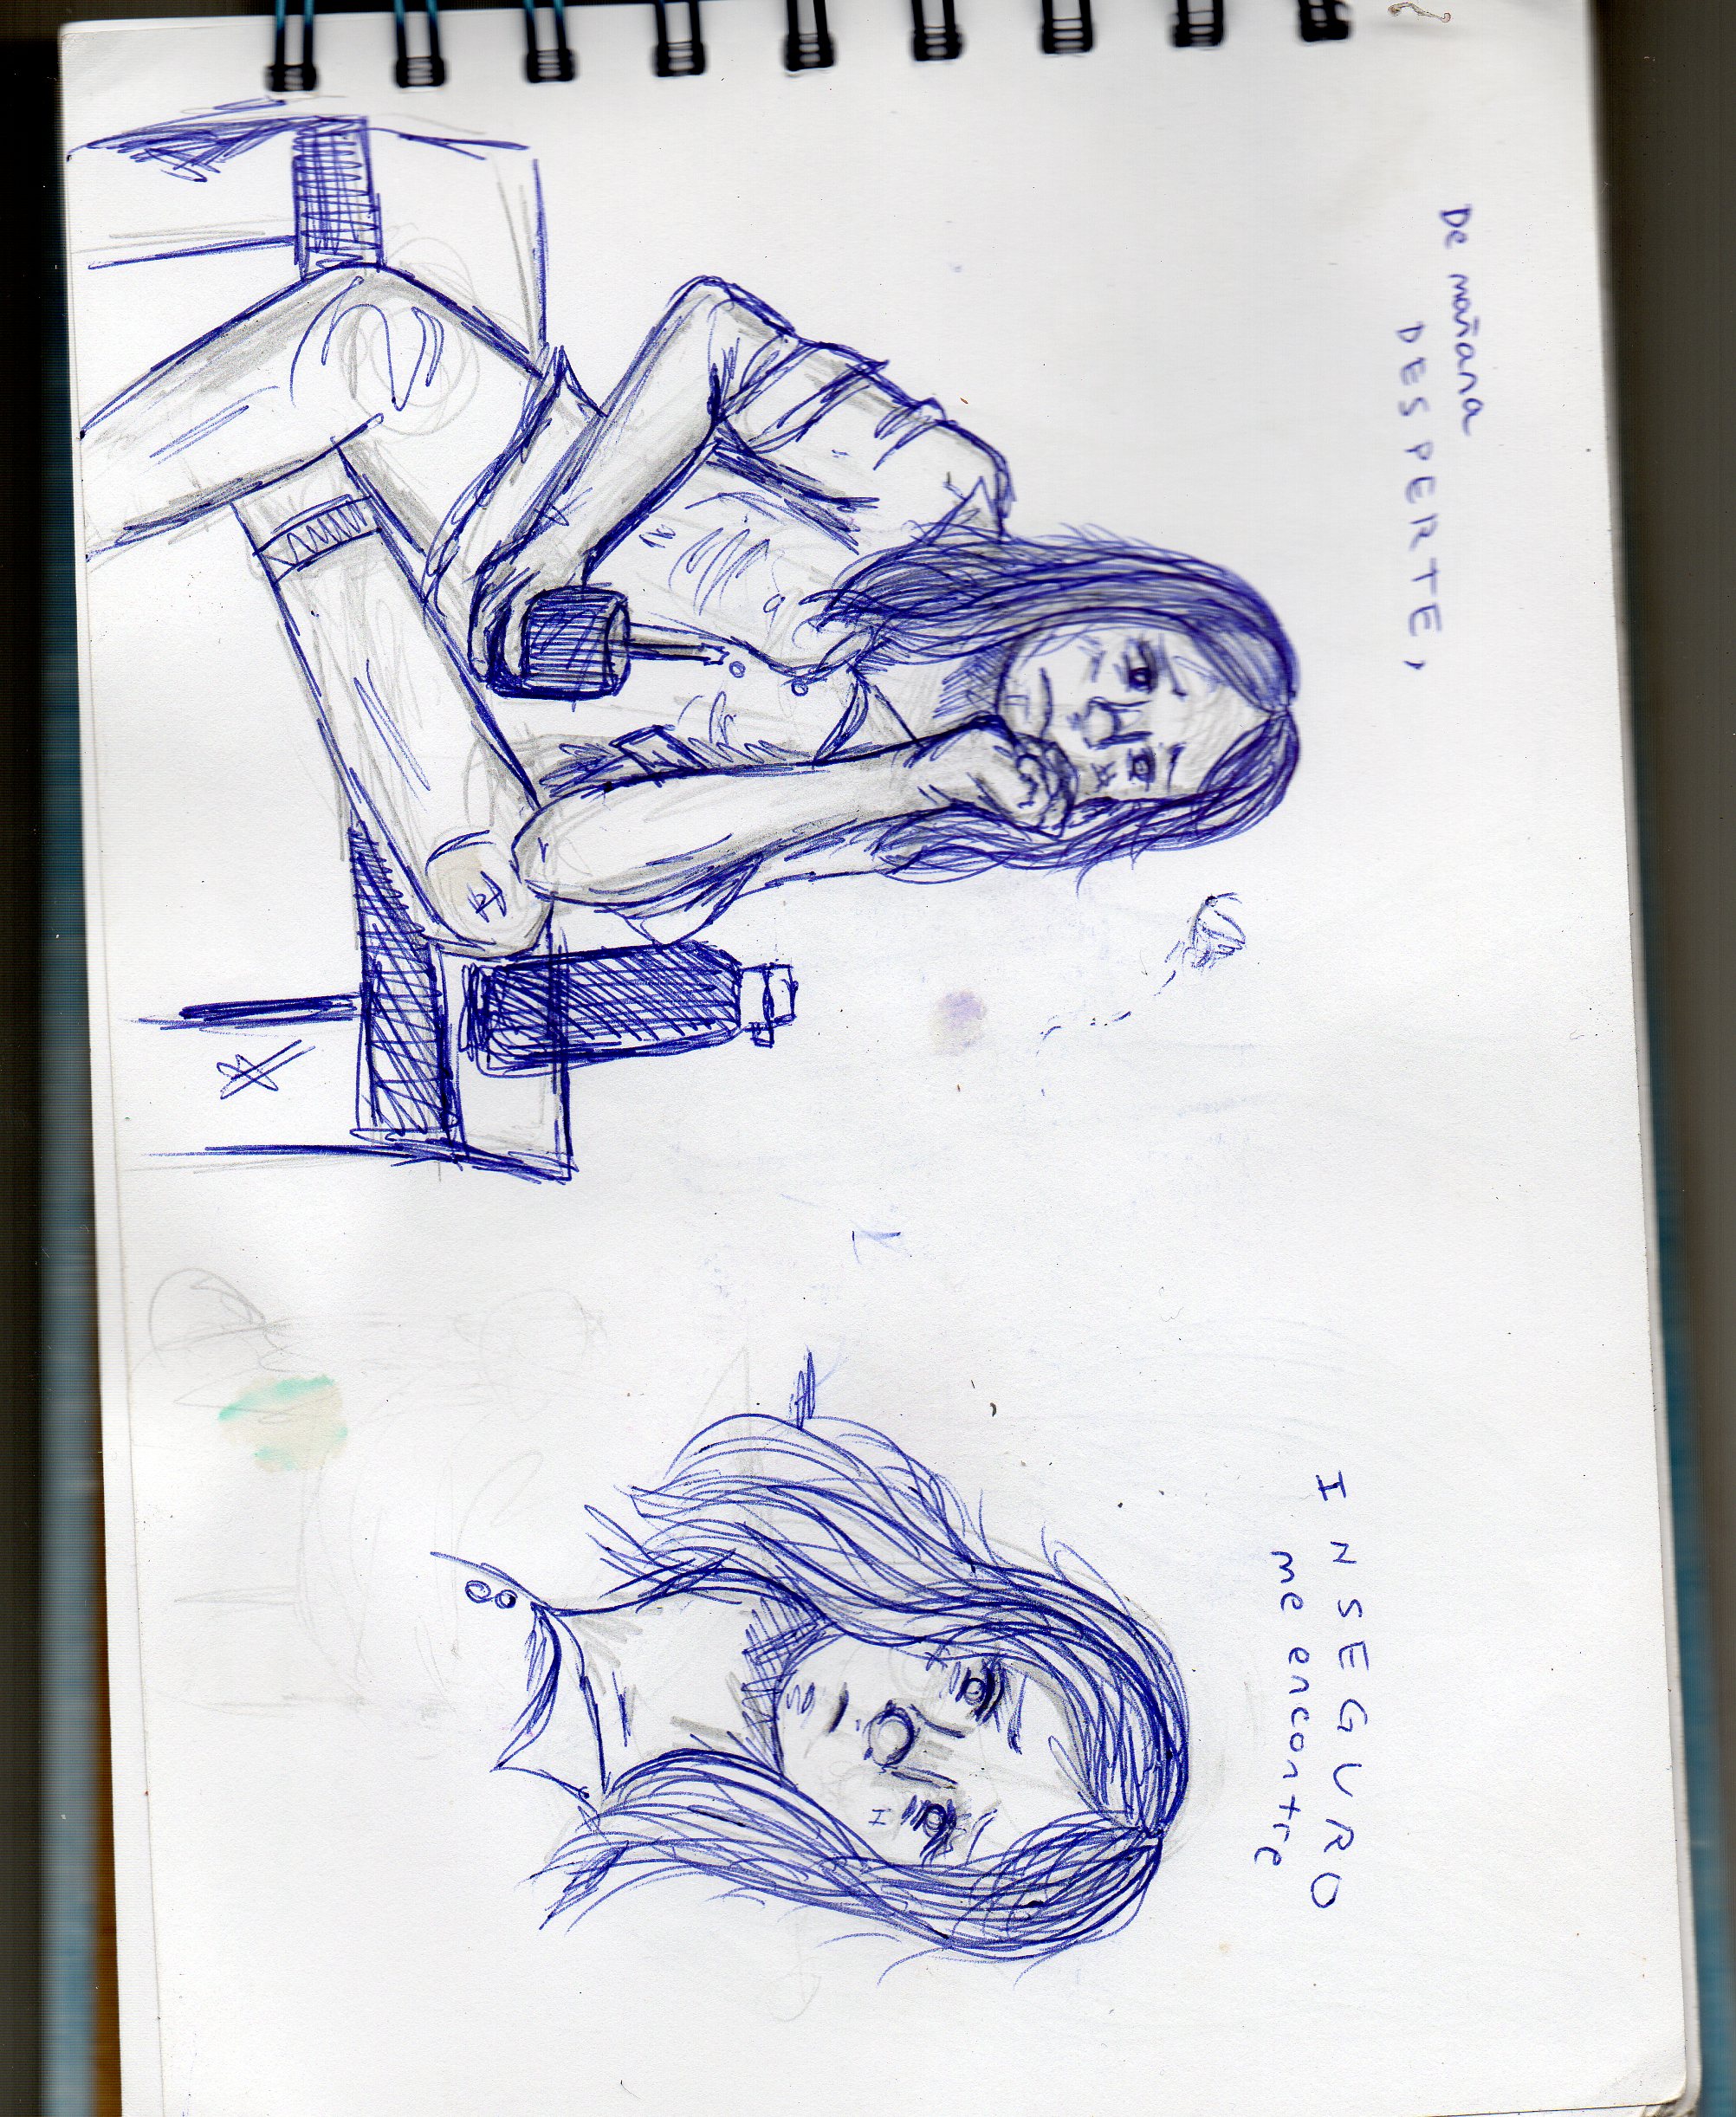 De mañana
DESPERTE,
INSEGURO
me encontre